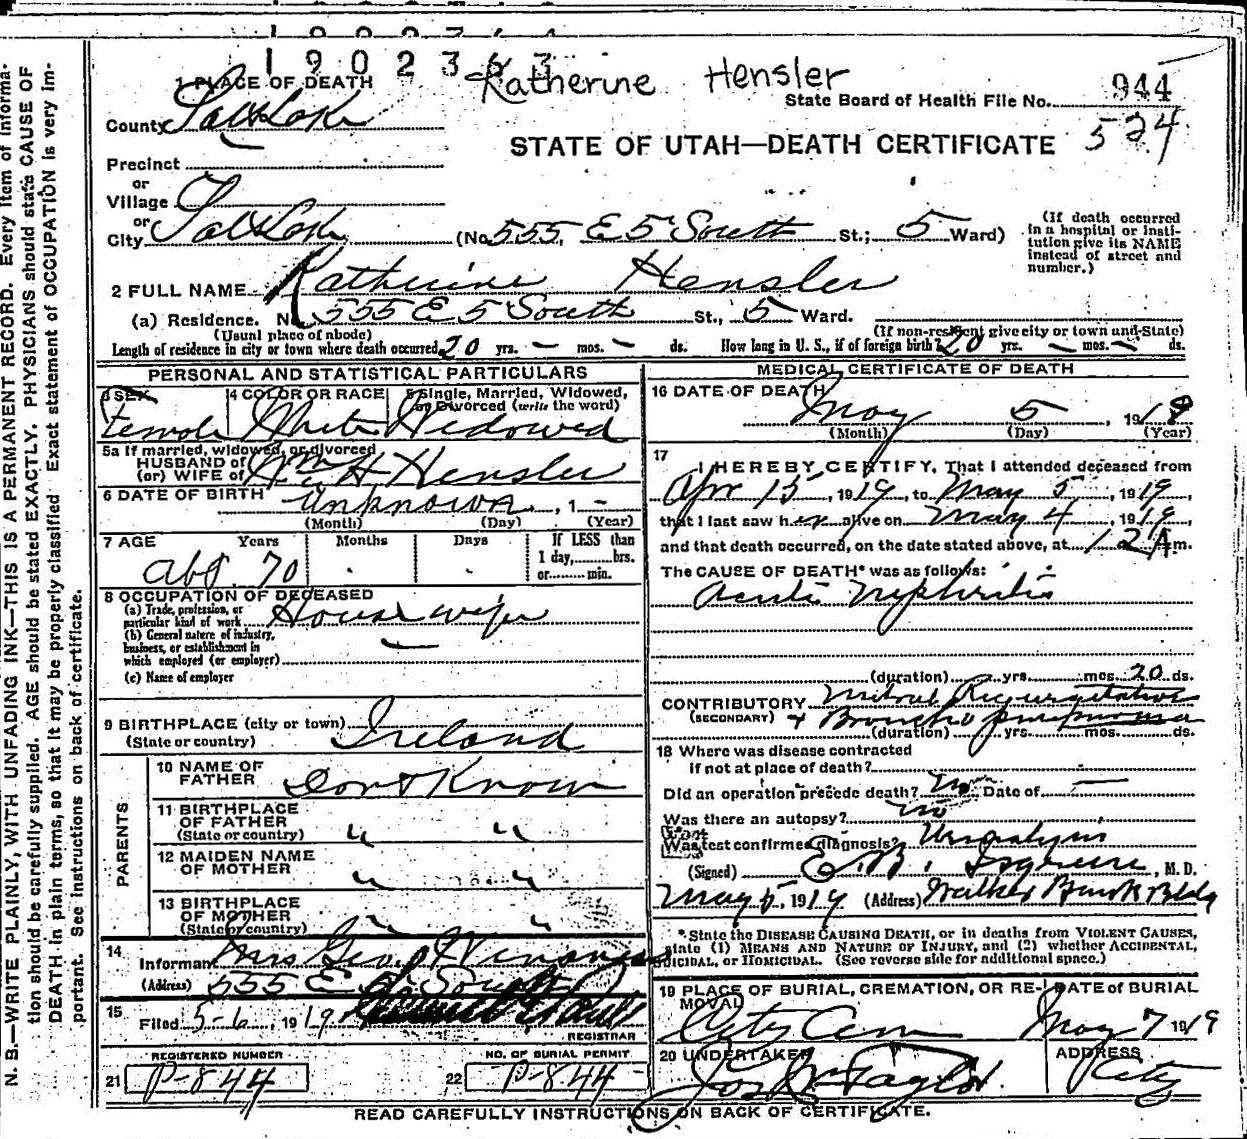 1902363
Katherine Hensler
1 PLACE OF DEATH
State Board of Health File No. 944
County Salt Lake
524
STATE OF UTAH—DEATH CERTIFICATE
Precinct
or
Village
or
City Salt Lake (No. 555, E 5 South St.; 5 Ward)
(If death occurred in a hospital or institution give its NAME instead of street and number.)
2 FULL NAME Katherine Hensler
(a) Residence. No. 555 E 5 South St., 5 Ward.
(Usual place of abode) (If non-resident give city or town and State)
Length of residence in city or town where death occurred 20 yrs. — mos. — ds. How long in U. S., if of foreign birth? 20 yrs. — mos. — ds.
PERSONAL AND STATISTICAL PARTICULARS
3 SEX 4 COLOR OR RACE 5 Single, Married, Widowed, or Divorced (write the word)
Female White Widowed
5a If married, widowed, or divorced
HUSBAND of
(or) WIFE of Wm H. Hensler
6 DATE OF BIRTH Unknown, 1 —
(Month) (Day) (Year)
7 AGE Years Months Days If LESS than 1 day, hrs. or min.
abt. 70
8 OCCUPATION OF DECEASED
(a) Trade, profession, or particular kind of work House wife
(b) General nature of industry, business, or establishment in which employed (or employer)
(c) Name of employer
9 BIRTHPLACE (city or town) Ireland
(State or country)
PARENTS
10 NAME OF FATHER Dont Know
11 BIRTHPLACE OF FATHER (State or country) " "
12 MAIDEN NAME OF MOTHER " "
13 BIRTHPLACE OF MOTHER (State or country) " "
14 Informant Mrs Geo.
(Address) 555 E 5 South
15 Filed 5-6, 1919
REGISTRAR
REGISTERED NUMBER NO. OF BURIAL PERMIT
21 P-844 22 P-844
MEDICAL CERTIFICATE OF DEATH
16 DATE OF DEATH
May 5, 1919
(Month) (Day) (Year)
17 I HEREBY CERTIFY, That I attended deceased from
Apr 15, 1919, to May 5, 1919,
that I last saw her alive on May 4, 1919,
and that death occurred, on the date stated above, at 12 A m.
The CAUSE OF DEATH* was as follows:
Acute Nephritis
(duration) yrs. mos. 20 ds.
CONTRIBUTORY Mitral Regurgitation
(SECONDARY) + Broncho pneumonia
(duration) yrs. mos. ds.
18 Where was disease contracted
if not at place of death?
Did an operation precede death? no Date of —
Was there an autopsy? no
What test confirmed diagnosis? Urinalysis
(Signed) E. B., M. D.
May 5, 1919 (Address) Walker Bank Bldg
*State the DISEASE CAUSING DEATH, or in deaths from VIOLENT CAUSES,
state (1) MEANS AND NATURE OF INJURY, and (2) whether ACCIDENTAL,
SUICIDAL, or HOMICIDAL. (See reverse side for additional space.)
19 PLACE OF BURIAL, CREMATION, OR REMOVAL DATE of BURIAL
City Cem May 7 1919
20 UNDERTAKER ADDRESS
Jos Wm Taylor City
READ CAREFULLY INSTRUCTIONS ON BACK OF CERTIFICATE.
N. B.—WRITE PLAINLY, WITH UNFADING INK—THIS IS A PERMANENT RECORD. Every item of informa-
tion should be carefully supplied. AGE should be stated EXACTLY. PHYSICIANS should state CAUSE OF
DEATH in plain terms, so that it may be properly classified. Exact statement of OCCUPATION is very im-
portant. See instructions on back of certificate.